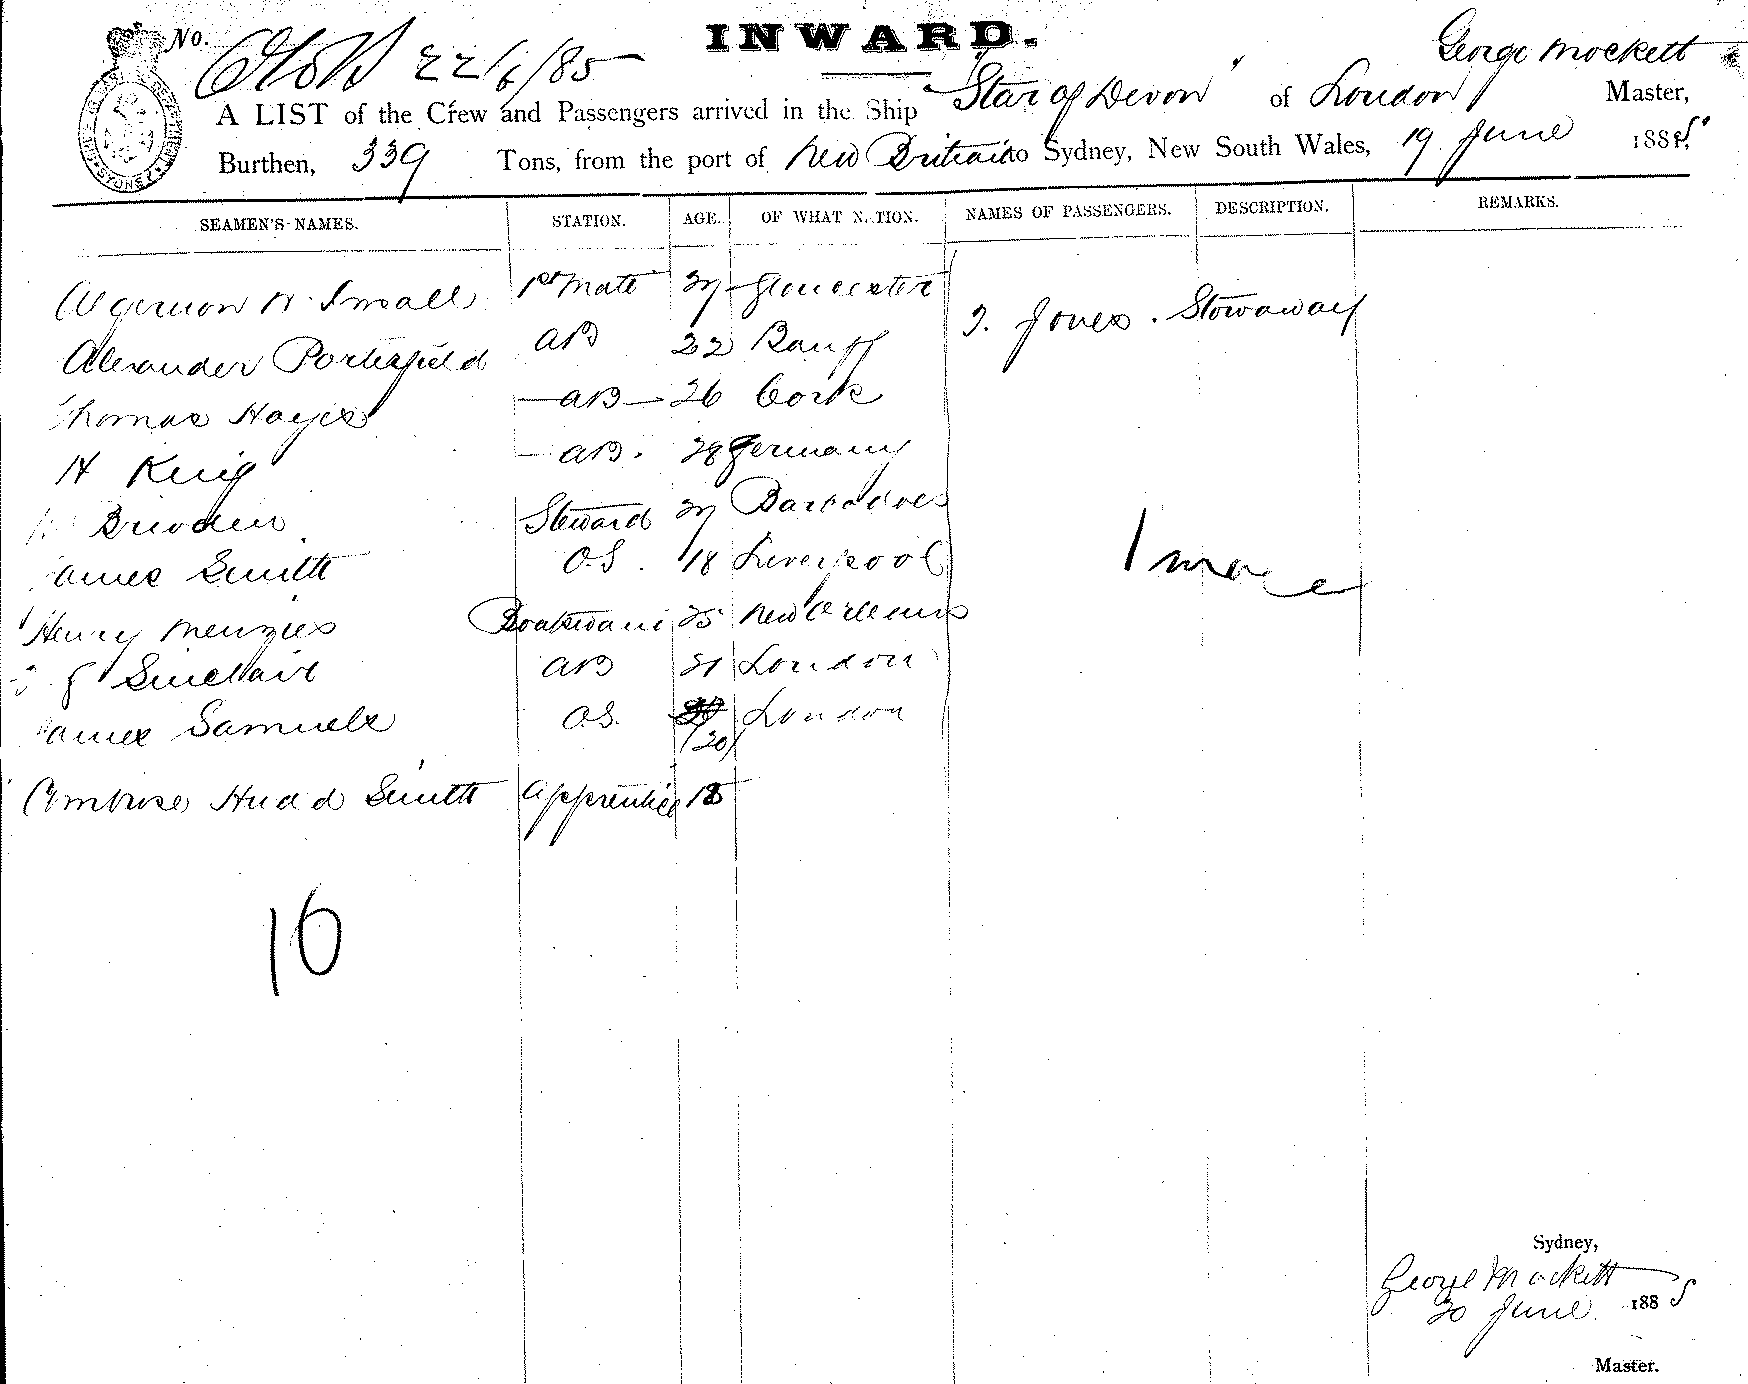 No.
INWARD.
22/6/85
George Mockett
A LIST of the Crew and Passengers arrived in the Ship "Star of Devon" of London Master,
Burthen, 339 Tons, from the port of New Britain to Sydney, New South Wales, 19 June 1885
SEAMEN'S NAMES. STATION. AGE. OF WHAT NATION. NAMES OF PASSENGERS. DESCRIPTION. REMARKS.
Algernon H. Small 1st Mate 27 Gloucester
J. Jones. Stowaway
Alexander Porterfield AB 22 Banff
Thomas Hayes AB 26 Cork
H King AB. 28 Germany
Steward 27 Barbadoes
James Smith O.S. 18 Liverpool
1 more
Henry Menzies Boatswain 25 New Orleans
J Sinclair AB 21 London
James Samuels O.S. 20 London
Ambrose Hudd Smith Apprentice 18
10
Sydney,
George Mockett
20 June 1885
Master.